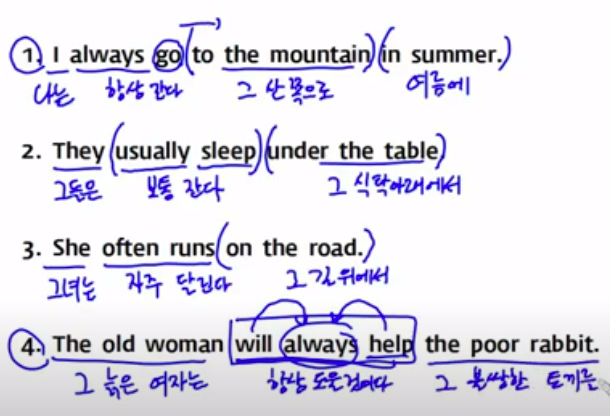 1. I always go to the mountain in summer.
나는 항상 간다 그 산 쪽으로 여름에
2. They usually sleep under the table
그들은 보통 잔다 그 식탁아래에서
3. She often runs on the road.
그녀는 자주 달린다 그 길 위에서
4. The old woman will always help the poor rabbit.
그 늙은 여자는 항상 도울것이다 그 불쌍한 토끼를